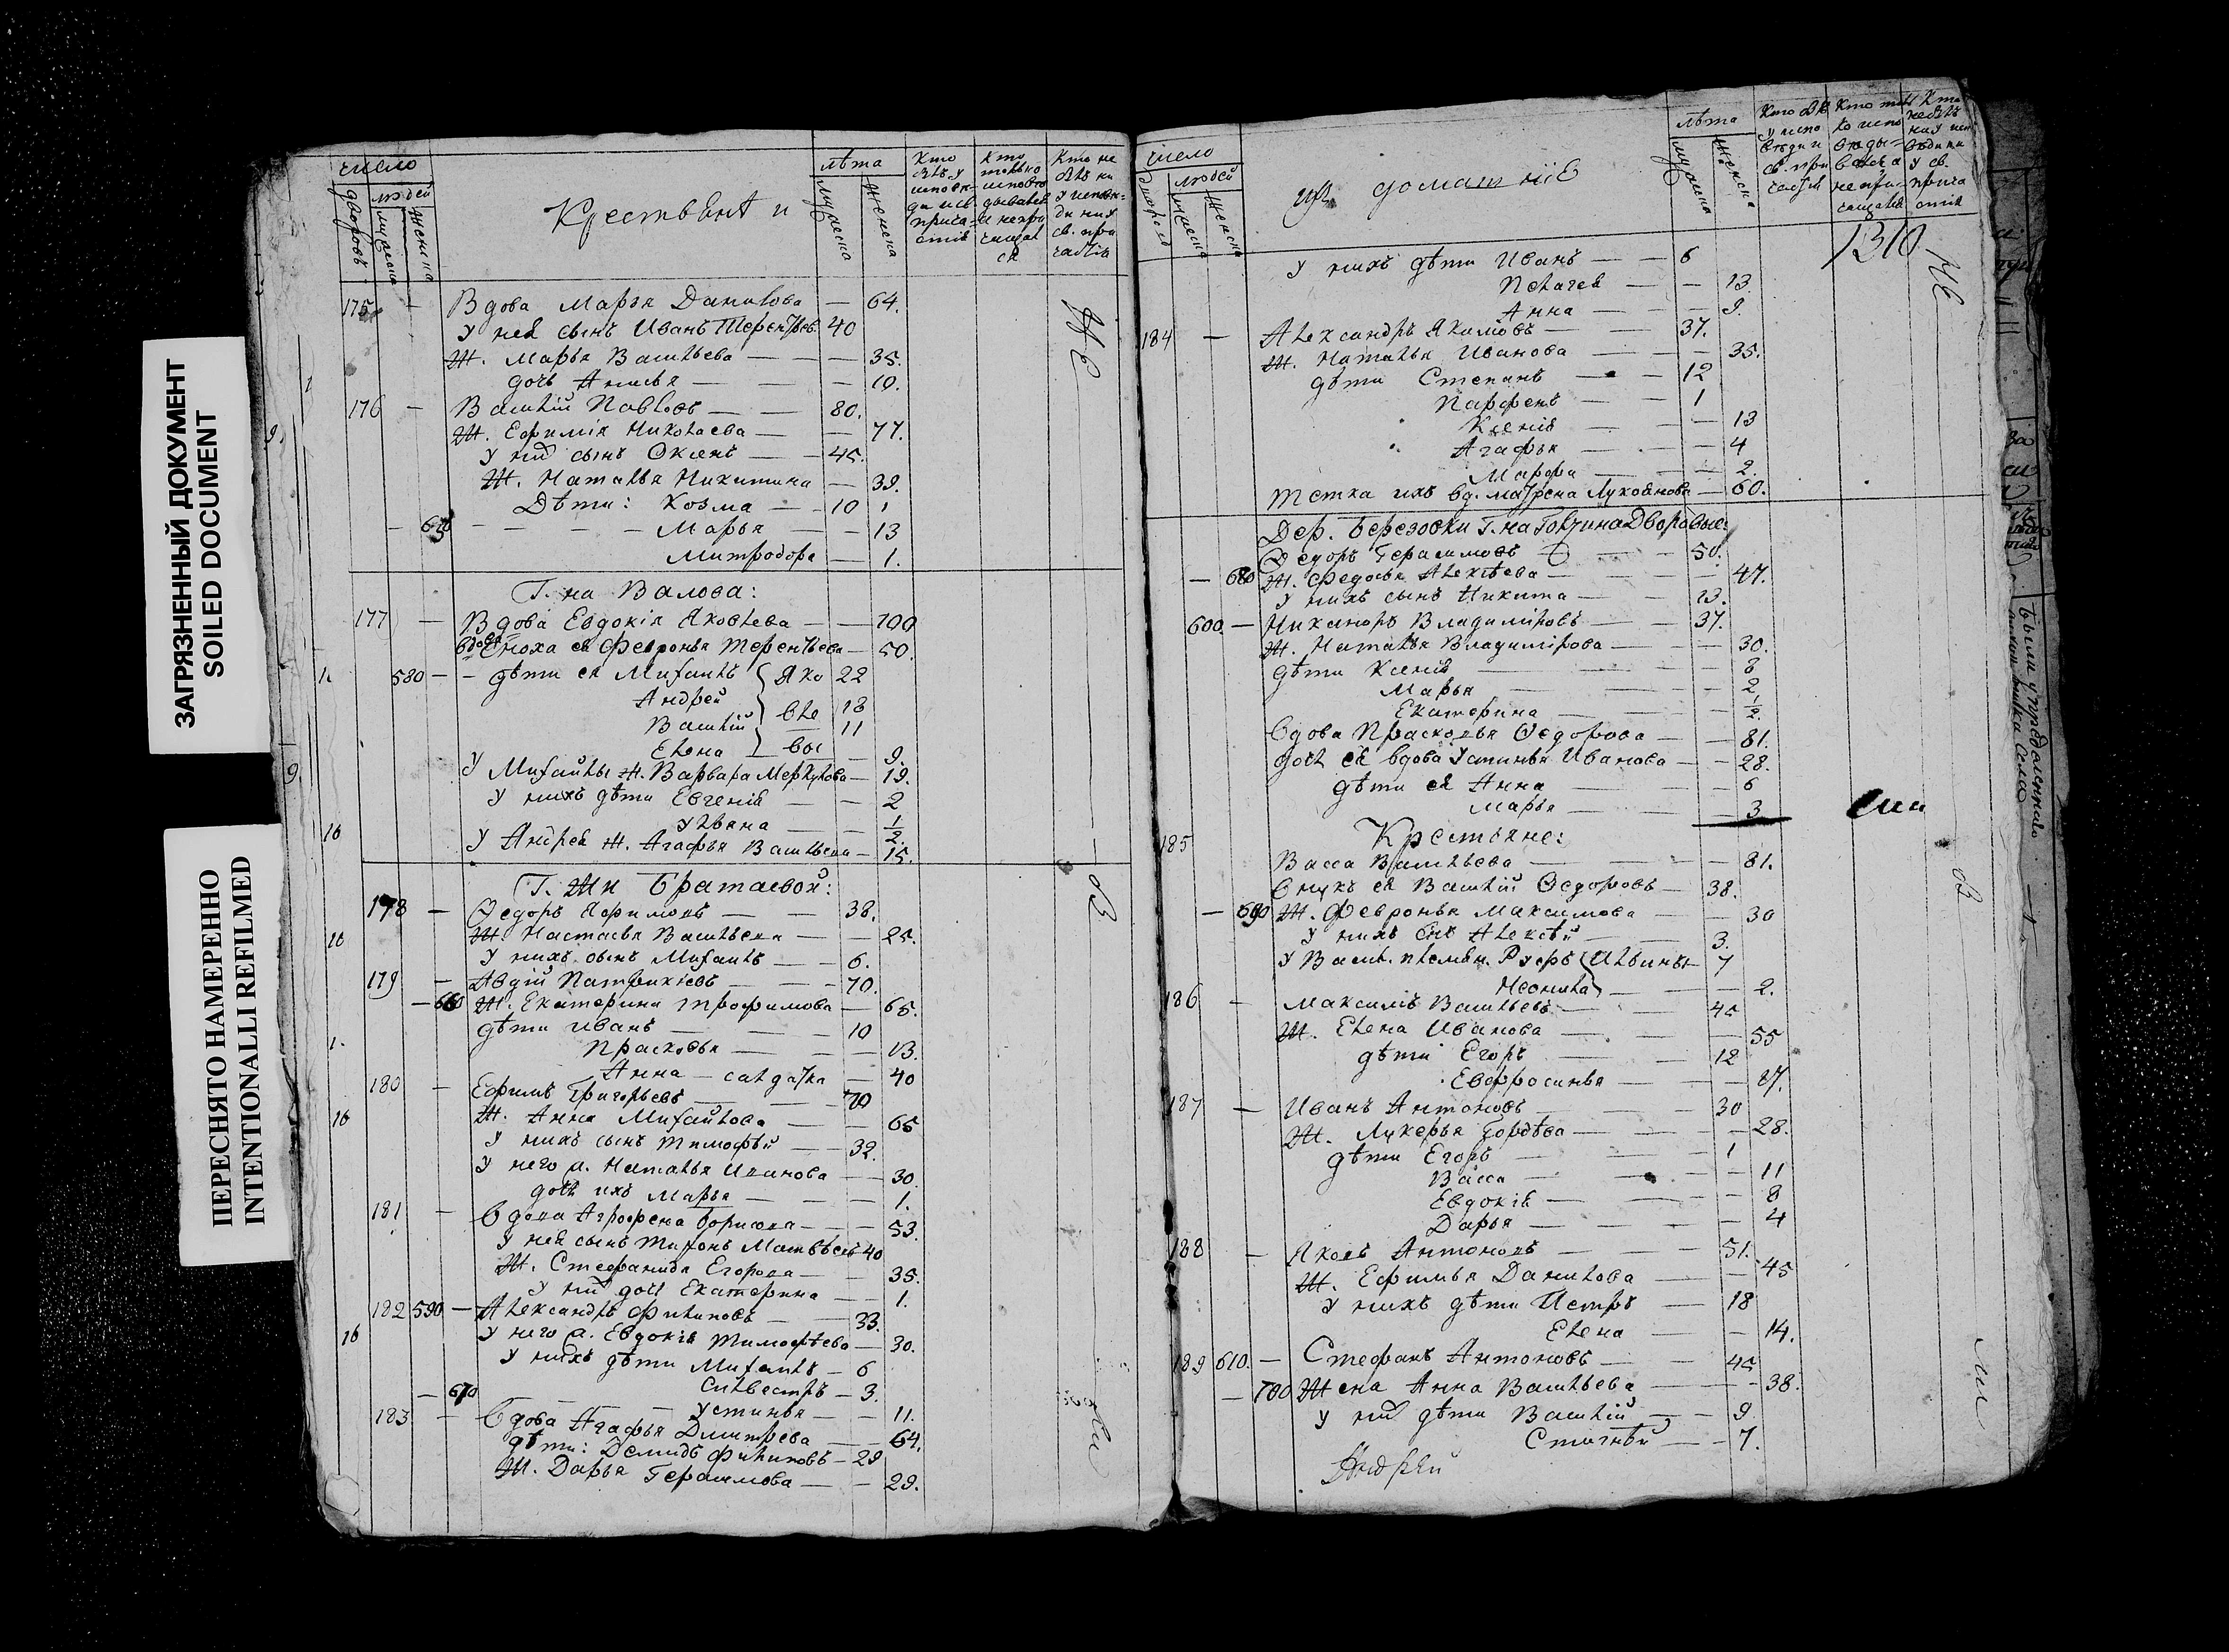 ЗАГРЯЗНЕННЫЙ ДОКУМЕНТ
SOILED DOCUMENT
ПЕРЕСНЯТО НАМЕРЕННО
INTENTIONALLI REFILMED
число
людей
дворовъ
мужеска
женска
Крестьянѣ и
лѣта
мужеска
женска
Кто былъ у исповѣди и св. причастія
Кто только исповѣдывался и непричащался
Кто не былъ ни у исповѣди ни у св. причастія
175 — Вдова Марья Данилова — 64.
У нея сынъ Иванъ Терентьев. 40
Ж. Марья Васильева — — — 35.
дочь Анисья — — — 10.
176 — Василій Павловъ — — 80.
Ж. Ефимія Николаева — — 77.
У нихъ сынъ — — 45.
Ж. Наталья Никитина — 39.
Дѣти: Козма — — 10
Марья — — 13
Митродора — 1.
Г. на Валова:
177 — Вдова Евдокія Яковлева — — 100
вдова Сноха ея Февронья Терентьева — 50.
580 — — дѣти ея Михаилъ Яко 22
Андрей вле 18
Василій — 11
Елена вы — 9.
У Михайлы Ж. Варвара Меркулова — 19.
У нихъ дѣти Евгенія — — 2
Ульяна — — 1/2.
У Андрея Ж. Агафья Васильева — 15.
Г. Жи Братаевой:
178 — Ѳедоръ Ефимовъ — — 38.
Ж. Настасья Васильева — — 25.
У нихъ сынъ Михаилъ — — 6.
179 — Авдій Патрикіевъ — — — 70.
— 660 Ж. Екатерина Трофимова — 65.
дѣти Иванъ — — — 10
Прасковья — — — 13.
Анна — салдатка — 40
180 — Ефимъ Григорьевъ — — — 70
Ж. Анна Михайлова — — 65
У нихъ сынъ Тимофѣй — — 32.
У него ж. Наталья Иванова — — 30.
дочь ихъ Марья — — — 1.
181 — Вдова Агрофена Борисова — — — 53.
У нея сынъ Тихонъ Матвѣевъ 40
Ж. Стефанида Егорова — — 35.
У них дочь Екатерина — — 1.
182 590 — Александръ Филиповъ — — 33.
У него ж. Евдокія Тимофѣева — 30.
У нихъ дѣти Михаилъ — 6
Силвестръ — 3.
— 670 — — Устинья — — 11.
183 — Вдова Агафья Дмитрева — — 64.
дѣти: Демидъ Филиповъ — 29
Ж. Дарья Герасимова — — 29.
число
людей
мужеска
женска
ихъ домашніе
лѣта
мужеска
женска
1310
У нихъ дѣти Иванъ — — 6
Пелагея — — 13.
Анна — — — 9.
184 — Александръ Якимовъ — — 37.
Ж. Наталья Иванова — — — 35.
дѣти Степанъ — — 12
Парфенъ — — 1
Ксенія — — — 13
Агафья — — — 4
Марфа — — — 2.
Тетка ихъ вд. Матрена Лукоянова — 60.
Дер. Березовки Г. на Дворовые:
Ѳедоръ Герасимовъ — — 50.
— 680 Ж. Федосья Алексѣева — — — 47.
У нихъ сынъ Никита — — 13.
600. — Никаноръ Владиміровъ — — 37.
Ж. Наталья Владимірова — — — 30.
дѣти Ксенія — — — 8
Марья — — — 2.
Екатерина — — — 1/2.
Вдова Прасковья Ѳедорова — — 81.
дочь ея вдова Устинья Иванова — — 28.
дѣти ея Анна — — — 6
Марья — — — 3
185 Крестьяне:
Васса Васильева — — — 81.
Внукъ ея Василій Ѳедоровъ — 38.
— 690 Ж. Февронья Максимова — — 30
У нихъ сынъ Алексѣй — — 3.
У Васил. племян. Руфъ Ильины 7
Неонила — — 2.
186 — Максимъ Васильевъ — — 45
Ж. Елена Иванова — — — 55
дѣти Егоръ — — 12
Евфросинья — — — 17.
187 — Иванъ Антоновъ — — 30
Ж. Лукерья Гордѣева — — — 28.
дѣти Егоръ — — 1
Васса — — — 11
Евдокія — — — 8
Дарья — — — 4
188 — Яковъ Антоновъ — — 51.
Ж. Ефимья Данилова — — 45
У нихъ дѣти Петръ — 18
Елена — — 14.
189 610. — Стефанъ Антоновъ — — 45
— 700 Жена Анна Васильева — — 38.
У них дѣти Василій — — 9.
— — 7.
Андрей